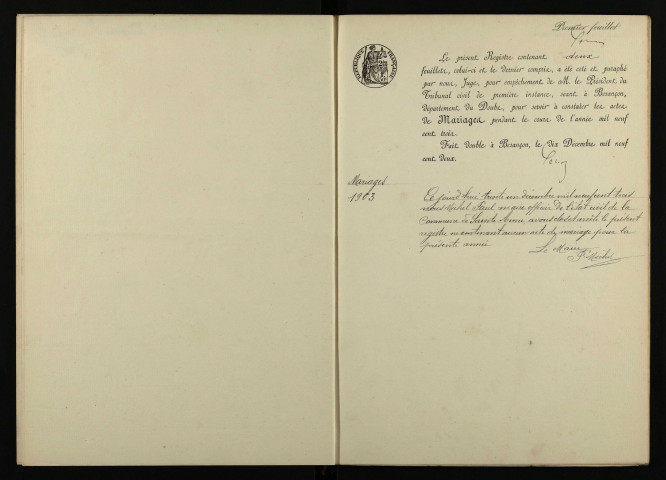 Premier feuillet
RÉPUBLIQUE FRANÇAISE
Le présent Registre contenant deux
feuillets, celui-ci et le dernier compris, a été coté et paraphé
par nous, Juge, pour empêchement de M. le Président du
Tribunal civil de première instance, séant à Besançon,
département du Doubs, pour servir à constater les actes
de Mariages pendant le cours de l'année mil neuf
cent trois.
Fait double à Besançon, le dix Décembre mil neuf
cent deux.
Mariages
1903
Ce jourd'hui trente un décembre mil neuf cent trois
nous Paul maire officier de l'état civil de la
Commune de Sainte Anne, avons clos et arrêté le présent
registre ne contenant aucun acte de mariage pour la
présente année
Le Maire